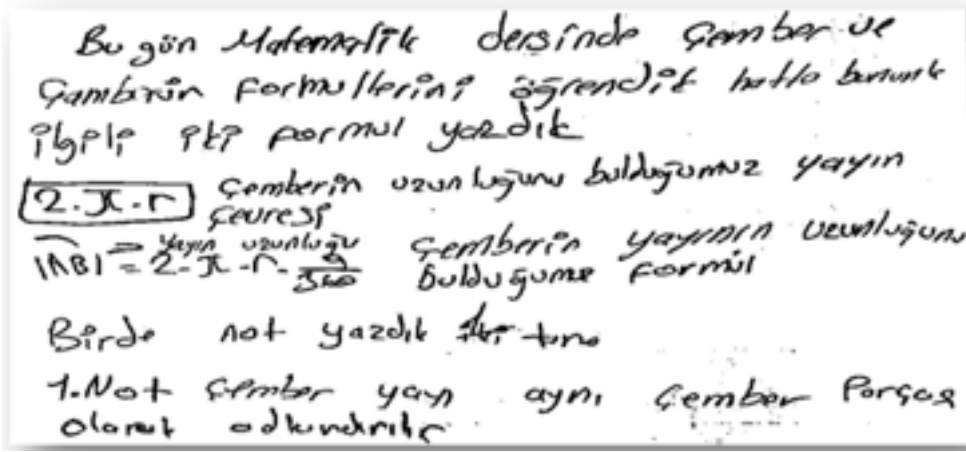 Bu gün Matematik dersinde Çember ve
Çambirin Formullerini öğrendik hatta bununla
ilgili iki formul yazdık
2.π.r Çemberin uzunluğunu bulduğumuz yayın
Çevresi
|AB| = Yayın uzunluğu Çemberin yayının uzunluğunu
= 2.π.r. /360 bulduğumuz formül
Birde not yazdık iki tane
1.Not Çember yayı aynı Çember Parçası
olarak adlandırılır